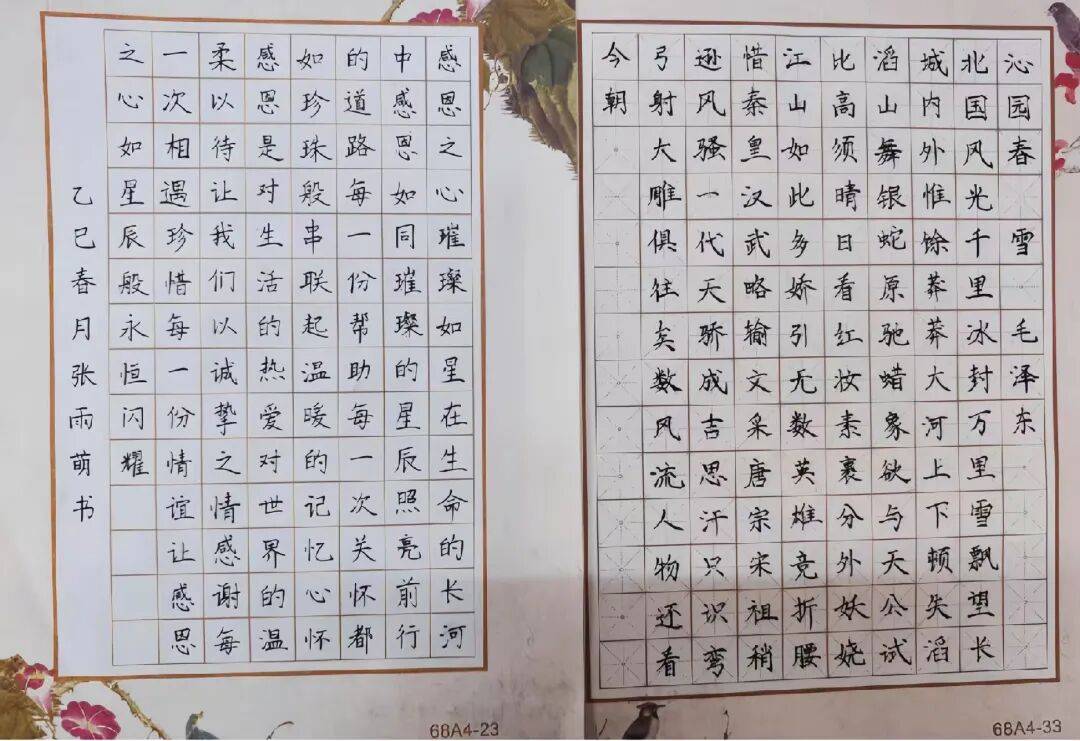 沁园春 雪 毛泽东
北国风光千里冰封万里雪飘望长
城内外惟馀莽莽大河上下顿失滔
滔山舞银蛇原驰蜡象欲与天公试
比高须晴日看红妆素裹分外妖娆
江山如此多娇引无数英雄竞折腰
惜秦皇汉武略输文采唐宗宋祖稍
逊风骚一代天骄成吉思汗只识弯
弓射大雕俱往矣数风流人物还看
今朝
68A4-33
感恩之心璀璨如星在生命的长河
中感恩如同璀璨的星辰照亮前行
的道路每一份帮助每一次关怀都
如珍珠般串联起温暖的记忆心怀
感恩是对生活的热爱对世界的温
柔以待让我们以诚挚之情感谢每
一次相遇珍惜每一份情谊让感恩
之心如星辰般永恒闪耀
乙巳春月张雨萌书
68A4-23